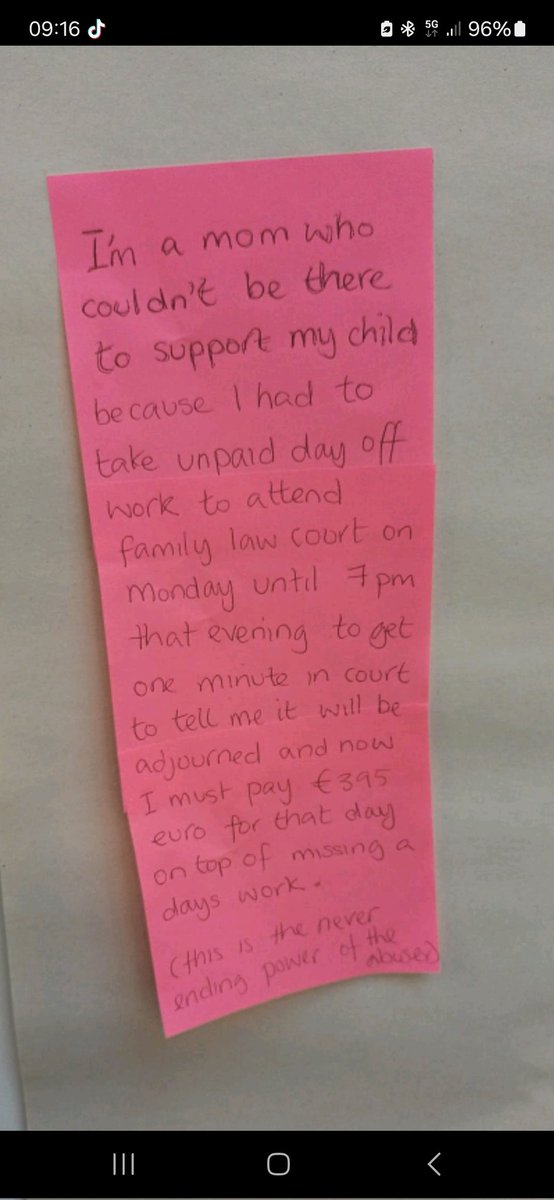 09:16
5G
96%
I'm a mom who
couldn't be there
to support my child
because I had to
take unpaid day off
work to attend
family law court on
monday until 7pm
that evening to get
one minute in court
to tell me it will be
adjourned and now
I must pay €395
euro for that day
on top of missing a
days work.
(this is the never
ending power of the
abuser)